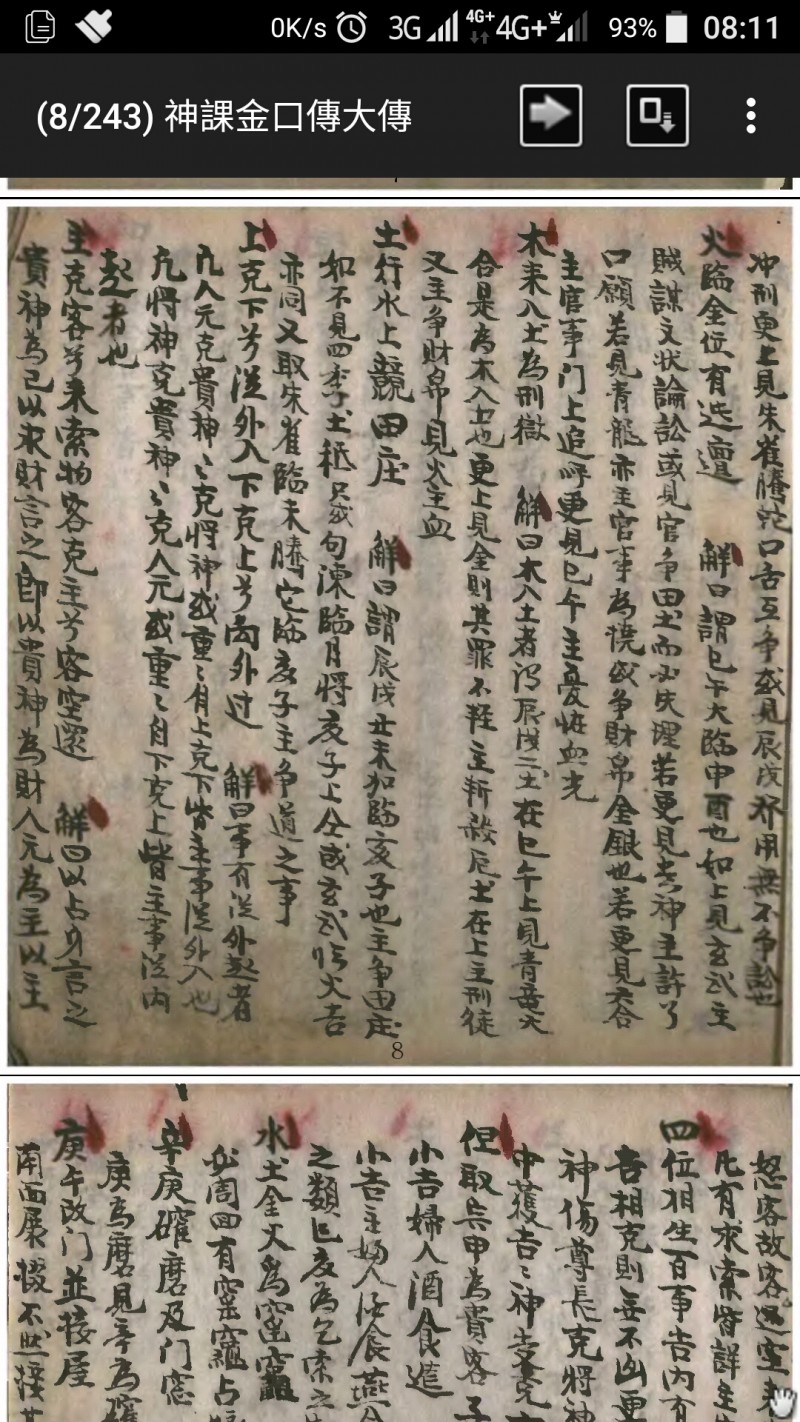 0K/s 3G 4G+ 4G+ 93% 08:11
(8/243) 神課金口傳大傳
冲刑更上見朱雀騰蛇口舌互争或見辰戌邪用無不争訟也
火臨金位有迍邅 解曰謂巳午火臨申酉也如上見玄武主
賊謀文状論訟或見官争田土而必失理若更見貴神主許了
口願若見青龍亦主官事為撓或争財帛金銀也若更見六合
主官事门上追呼更見巳午主憂怪血光
木来入土為刑獄 解曰木入土者得辰戌二土在巳午上見青龍六
合是為木入土也更上見金則其罪不軽主斬殺辰土在上主刑徒
又主争財帛見火主血
土行水上競田庄 解曰謂辰戌丑未加臨亥子也主争田庄
如不見四季土秖只或勾陳臨月将亥子上公或玄武临大吉
亦同又取朱雀臨未騰它临亥子主争道之事
上克下兮従外入下克上兮向外过 解曰事有従外起者
凡人元克貴神〻克将神或重〻自上克下皆主事従外入也
凢将神克貴神〻克人元或重〻自下克上皆主事従内
起者也
主克客兮来索物客克主兮客空還 解曰以占身言之
貴神為己以求財言之即以貴神為財人元為主以主
8
怒客故客還空来
凢有求索皆詳主
四位相生百事吉内有
吉相克則無不凶更
神傷尊長克将神
中獲吉〻神
但取兵甲為貴客子
小吉婦人酒食造
小吉主婦人酒食燕会
之類巳亥為乞索之
水土金火為窑竈
必周四有窑竈占
辛庚確磨及门窓
庚為磨見辛為確
庚午改门並接屋
南面展掇不然接其